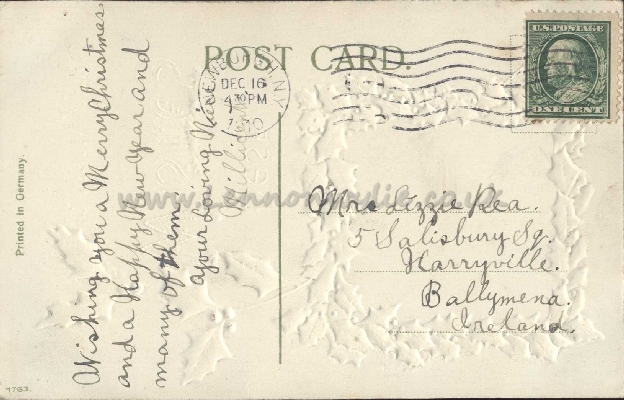 POST CARD.
DEC 16
4 30 PM
1910
N.Y.
U.S. POSTAGE
ONE CENT
Wishing you a Merry Christmas
and a Happy New Year and
many of them
your Loving Niece
Millie
Mrs Lizzie Rea.
5 Salisbury Sq.
Harryville.
Ballymena.
Ireland.
Printed in Germany.
1763.